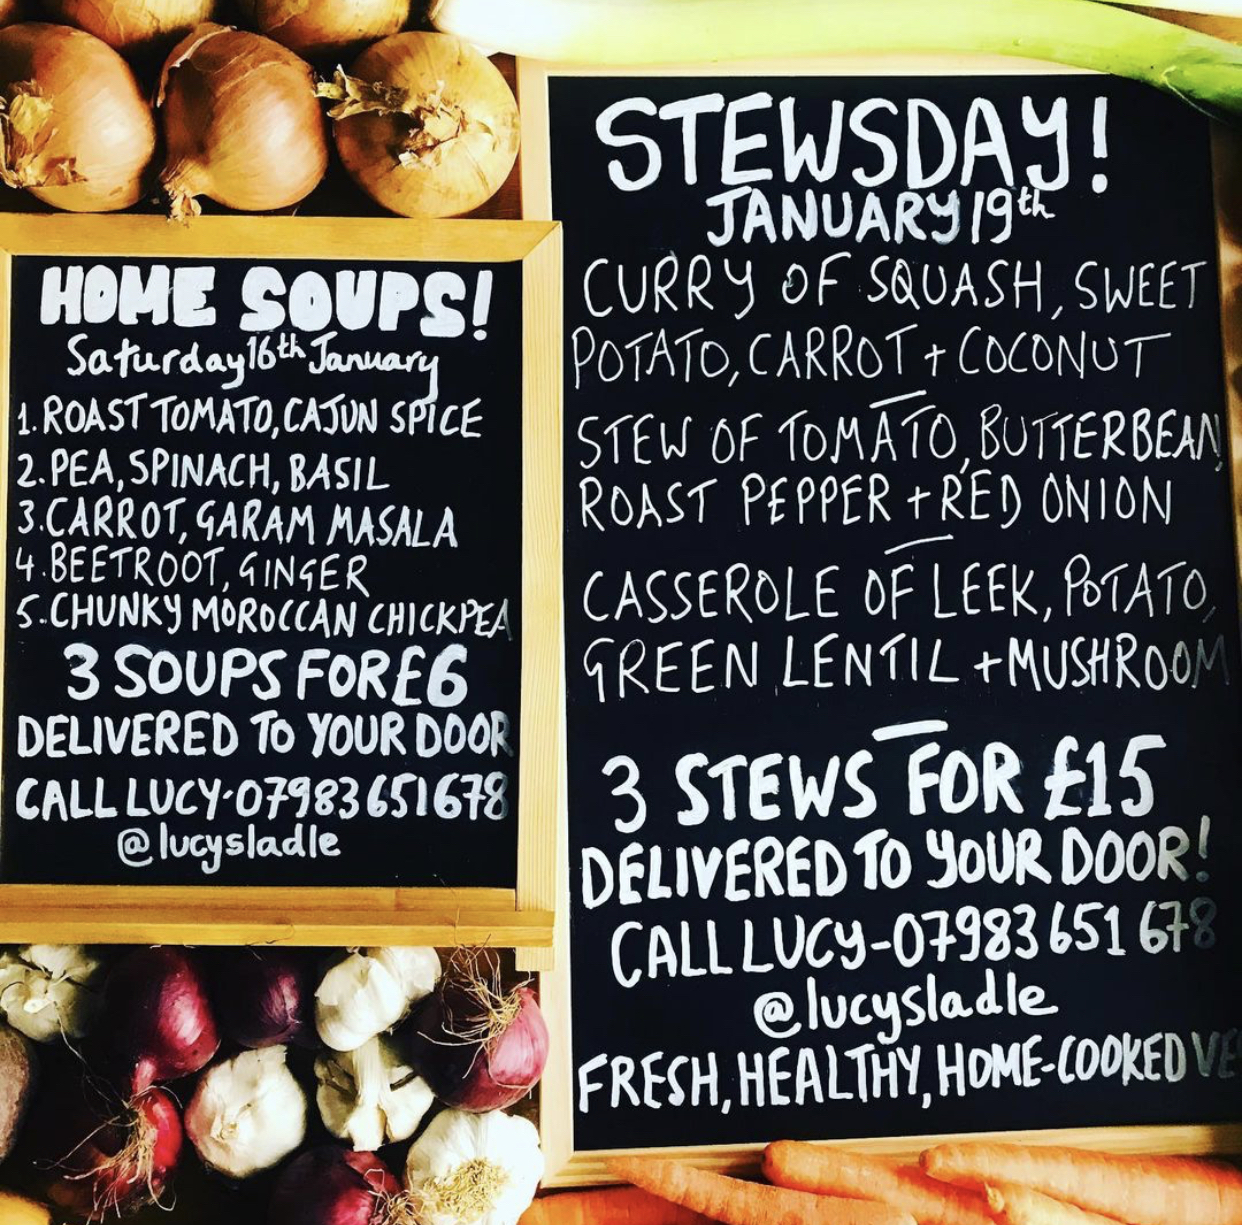 HOME SOUPS!
Saturday 16th January
1. ROAST TOMATO, CAJUN SPICE
2. PEA, SPINACH, BASIL
3. CARROT, GARAM MASALA
4. BEETROOT, GINGER
5. CHUNKY MOROCCAN CHICKPEA
3 SOUPS FOR £6
DELIVERED TO YOUR DOOR
CALL LUCY-07983 651678
@lucysladle
STEWSDAY!
JANUARY 19th
CURRY OF SQUASH, SWEET
POTATO, CARROT + COCONUT
STEW OF TOMATO, BUTTERBEAN,
ROAST PEPPER + RED ONION
CASSEROLE OF LEEK, POTATO,
GREEN LENTIL + MUSHROOM
3 STEWS FOR £15
DELIVERED TO YOUR DOOR!
CALL LUCY-07983 651 678
@lucysladle
FRESH, HEALTHY, HOME-COOKED